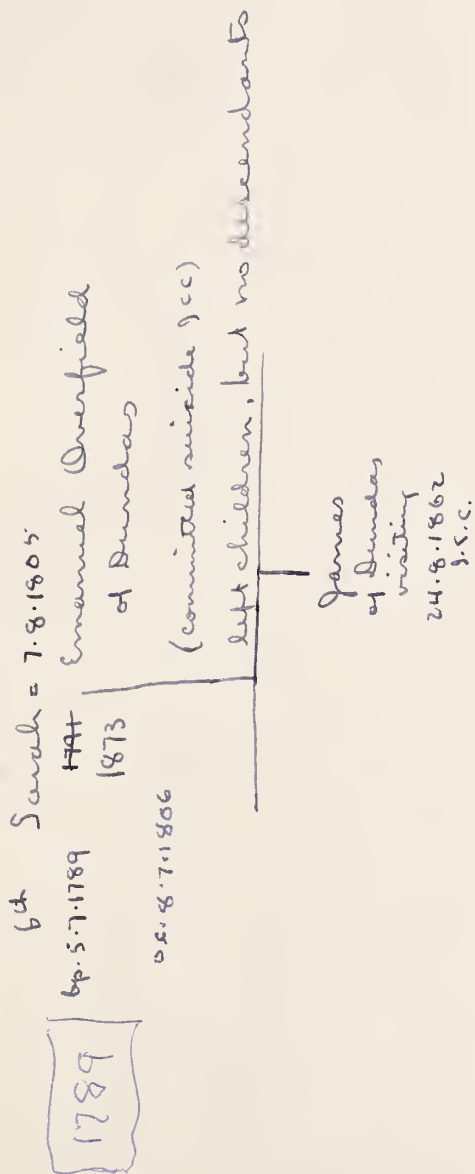 1789
6th Sarah = 7.8.1805
bp. 5.7.1789 1791 Emanuel Overfield
1873 of Dundas
o.s. 8.7.1806 (committed suicide JCC)
left children, but no descendants
James
of Dundas
visiting
24.8.1862
J.S.C.